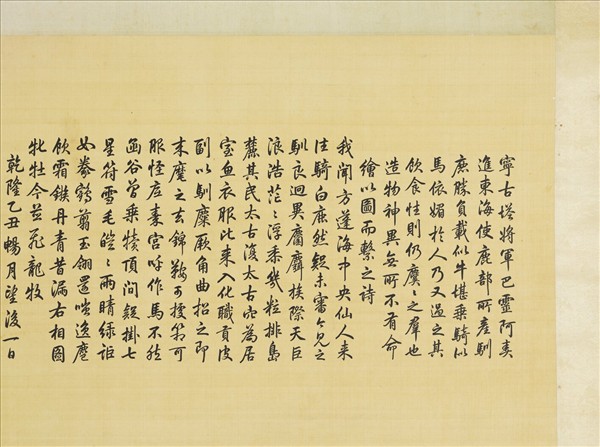 寧古塔將軍巴靈阿奏
進東海使鹿部所產馴
鹿勝負載似牛堪乘騎似
馬依媚於人乃又過之其
飲食性則仍麌麌之群也
造物神異無所不有命
繪以圖而繫之詩
我聞方蓬海中央仙人來
往騎白鹿然疑未審今見之
馴良迥異麕麝族際天巨
浪浩茫茫浮黍幾粒排島
麓其民太古復太古穴為居
室血衣服比來入化職貢皮
副以馴麋厥角曲招之即
來麾之去錦韉可據芻可
服怪底秦宮呼作馬不然
函谷曾乘犢頂間疑掛七
星符雪毛皚皚兩睛綠詎
如養鶴翦玉翎還嗤逸麈
飲霜鏃丹青昔漏右相圖
牝牡今並飛龍牧
乾隆乙丑暢月望後一日